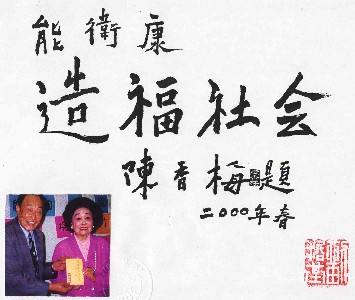 能衛康
造福社会
陳香梅題
二000年春